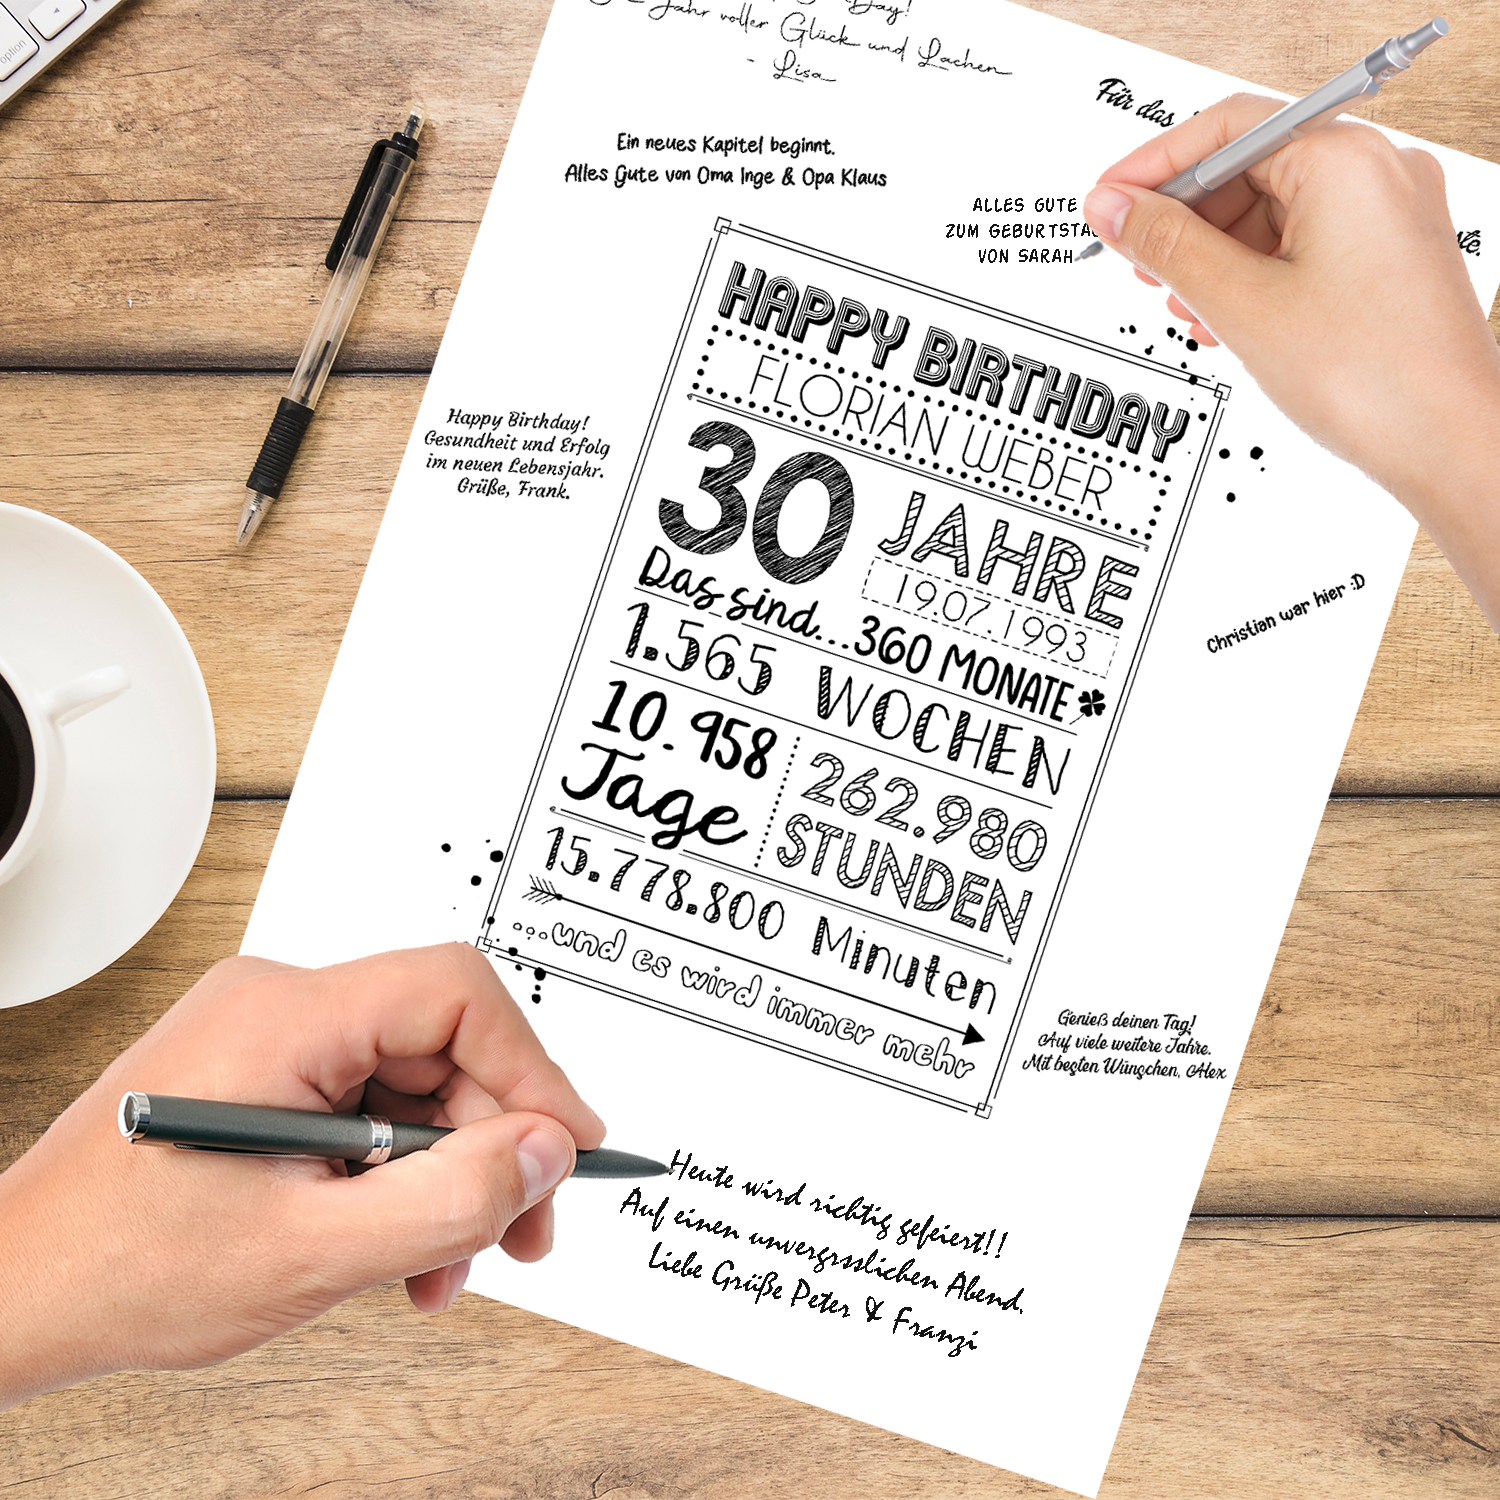 option
Day!
Jahr voller Glück und Lachen
- Lisa
Für das
Ein neues Kapitel beginnt.
Alles Gute von Oma Inge & Opa Klaus
ALLES GUTE
ZUM GEBURTSTAG
VON SARAH
HAPPY BIRTHDAY
FLORIAN WEBER
30 JAHRE
19.07.1993
Das sind...360 MONATE
1.565 WOCHEN
10.958
Tage
262.980
STUNDEN
15.778.800 Minuten
...und es wird immer mehr
Happy Birthday!
Gesundheit und Erfolg
im neuen Lebensjahr.
Grüße, Frank.
Christian war hier :D
Genieß deinen Tag!
Auf viele weitere Jahre.
Mit besten Wünschen, Alex
Heute wird richtig gefeiert!!
Auf einen unvergrsslichen Abend.
Liebe Grüße Peter & Franzi